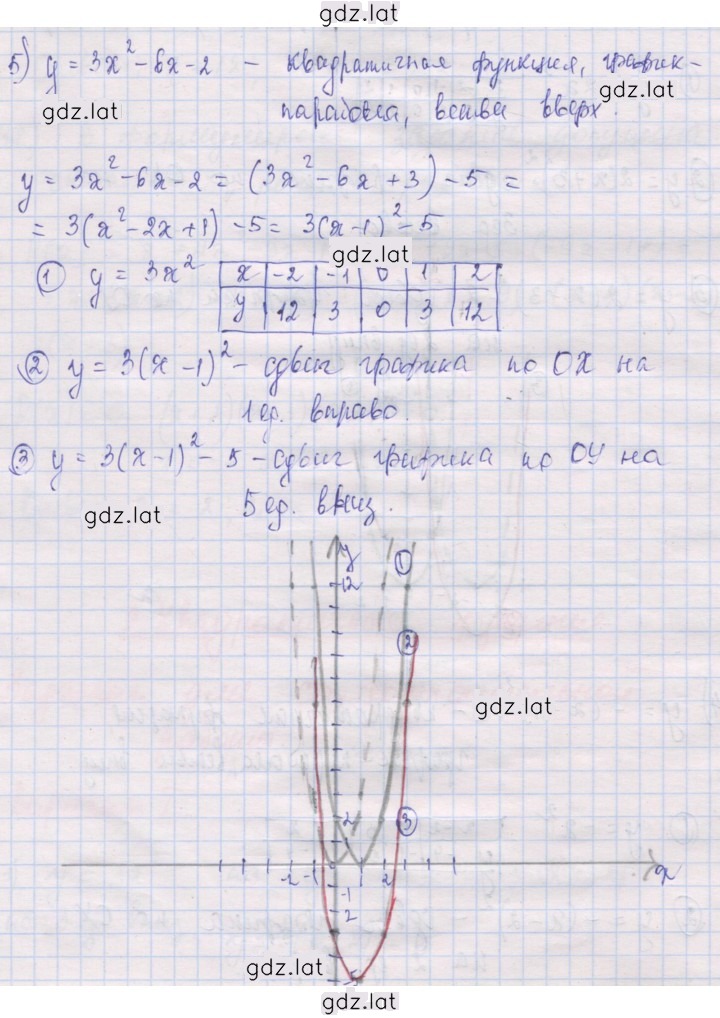 gdz.lat
5) y = 3x² - 6x - 2 - квадратичная функция, график-
gdz.lat
gdz.lat
парабола, ветви вверх.
y = 3x² - 6x - 2 = (3x² - 6x + 3) - 5 =
= 3(x² - 2x + 1) - 5 = 3(x - 1)² - 5
gdz.lat
① y = 3x² x -2 -1 0 1 2
y 12 3 0 3 12
② y = 3(x - 1)² - сдвиг графика по OX на
1 ед. вправо.
③ y = 3(x - 1)² - 5 - сдвиг графика по OY на
5 ед. вниз.
gdz.lat
y ①
12
②
gdz.lat
2 ③
-2 -1 2 x
-1
2
gdz.lat
-5
gdz.lat